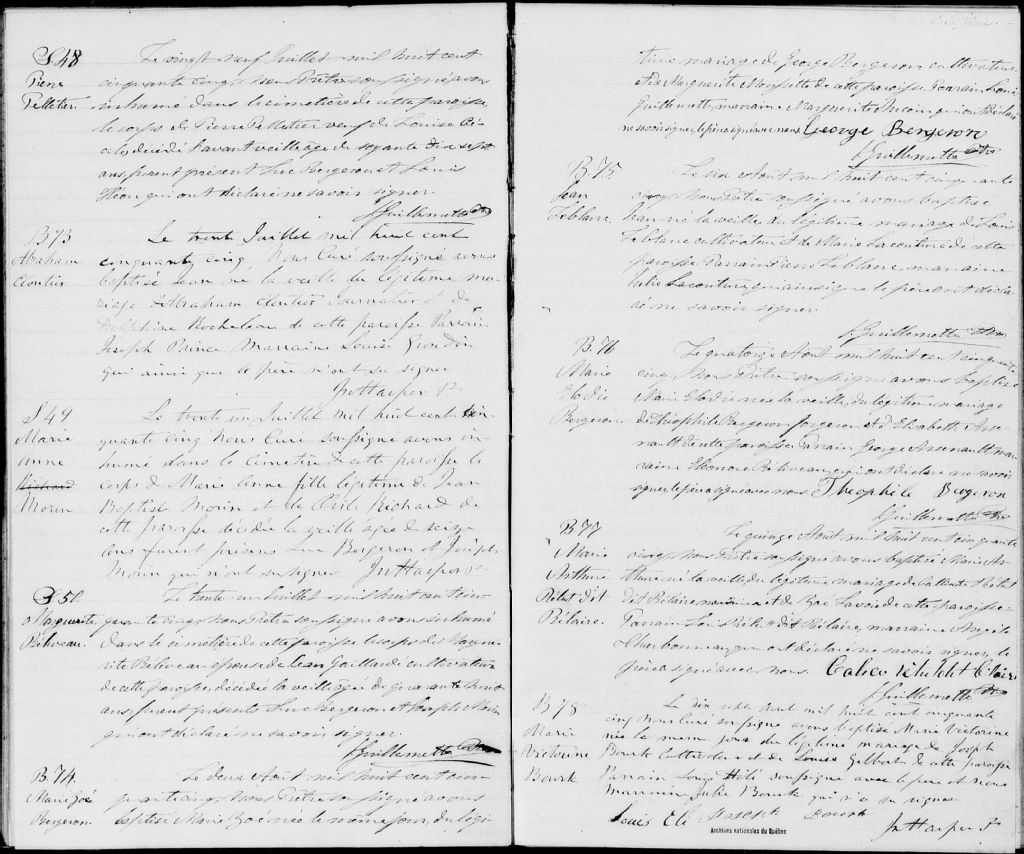 S 48
Pierre
Pelletier
Le vingt neuf Juillet mil huit cent
cinquante cinq, Nous Prêtre soussigné avons
inhumé dans le cimetière de cette paroisse
le corps de Pierre Pelletier veuf de Louise
décédé l'avant veille âgé de soixante dix sept
ans, furent présent Luc Bergeron et Louis
Héon qui ont déclaré ne savoir signer.
J Guillemette Ptre
B 73
Abraham
Cloutier
Le trente Juillet mil huit cent
cinquante cinq Nous Curé soussigné avons
baptisé Jean né la veille du légitime ma-
riage d'Abraham Cloutier Journalier et de
Delphine Rocheleau de cette paroisse Parrain
Joseph Prince Marraine Louise
qui ainsi que le père n'ont su signer
Jn Harper Ptre
S 49
Marie
Anne
Richard
Morin
Le trente un Juillet mil huit cent cin-
quante cinq Nous Curé soussigné avons in-
humé dans le Cimetière de cette paroisse le
corps de Marie Anne fille légitime de Jean
Baptiste Morin et de Richard de
cette paroisse décédée la veille agée de seize
ans furent présens Luc Bergeron et Joseph
Morin qui n'ont su signer Jn Harper Ptre
S 50
Marguerite
Béliveau.
Le trente un Juillet mil huit cent cin-
quante cinq, Nous Prêtre soussigné avons inhumé
dans le cimetière de cette paroisse le corps de Margue-
rite Béliveau épouse de Jean Gaillard cultivateur
de cette paroisse, décédée la veille âgée de quarante huit
ans, furent présents Luc Bergeron et Joseph Morin
qui ont déclaré ne savoir signer.
J Guillemette Ptre
B 74.
Marie Zoé
Bergeron.
Le deux Août mil huit cent cin-
quante cinq, Nous Prêtre soussigné avons
baptisé Marie Zoé née le même jour, du légi-
time mariage de George Bergeron cultivateur
et de Marguerite de cette paroisse. Parrain Louis
Guillemette, marraine Marguerite qui ont déclaré
ne savoir signer, le père a signé avec nous. George Bergeron
J Guillemette Ptre
B. 75.
Jean
Leblanc
Le six Août mil huit cent cinquante
cinq, Nous Prêtre soussigné avons baptisé
Jean né la veille du légitime mariage de Louis
Leblanc cultivateur et de Marie Lacouture de cette
paroisse Parrain Pierre Leblanc, marraine
Julie Lacouture qui ainsi que le père ont décla-
ré ne savoir signer.
J Guillemette Ptre
B. 76
Marie
Elodie
Bergeron.
Le quatorze Août mil huit cent cinquante
cinq, Nous Prêtre soussigné avons baptisé
Marie Elodie née la veille, du légitime mariage
de Théophile Bergeron forgeron et d'Elisabeth Arse-
nault de cette paroisse Parrain George Arsenault mar-
raine Eléonore Béliveau, qui ont déclaré ne savoir
signer, le père a signé avec nous Theophile Bergeron
J Guillemette Ptre
B 77
Marie
Arthur
Hélot dit
Bélaire.
Le quinze Août mil huit cent cinquante
cinq, Nous Prêtre soussigné avons baptisé Marie Ar-
thur né la veille du légitime mariage de
dit Bélaire et de Zoé Lavoie de cette paroisse.
Parrain dit Bélaire, marraine Angèle
Charbonneau, qui ont déclaré ne savoir signer, le
père a signé avec nous.
J Guillemette Ptre
B 78
Marie
Victorine
Bourk
Le dix sept Aout mil huit cent cinquante
cinq Nous Curé soussigné avons baptisé Marie Victorine
née le meme jour du légitime mariage de Joseph
Bourk Cultivateur et de Louise Gilbert de cette paroisse
Parrain Louis Hélie soussigné avec le père et nous
Marraine Julie Bourk qui n'a su signer
Louis Eli Joseph Bourk
Jn Harper Ptre
Archives nationales du Québec